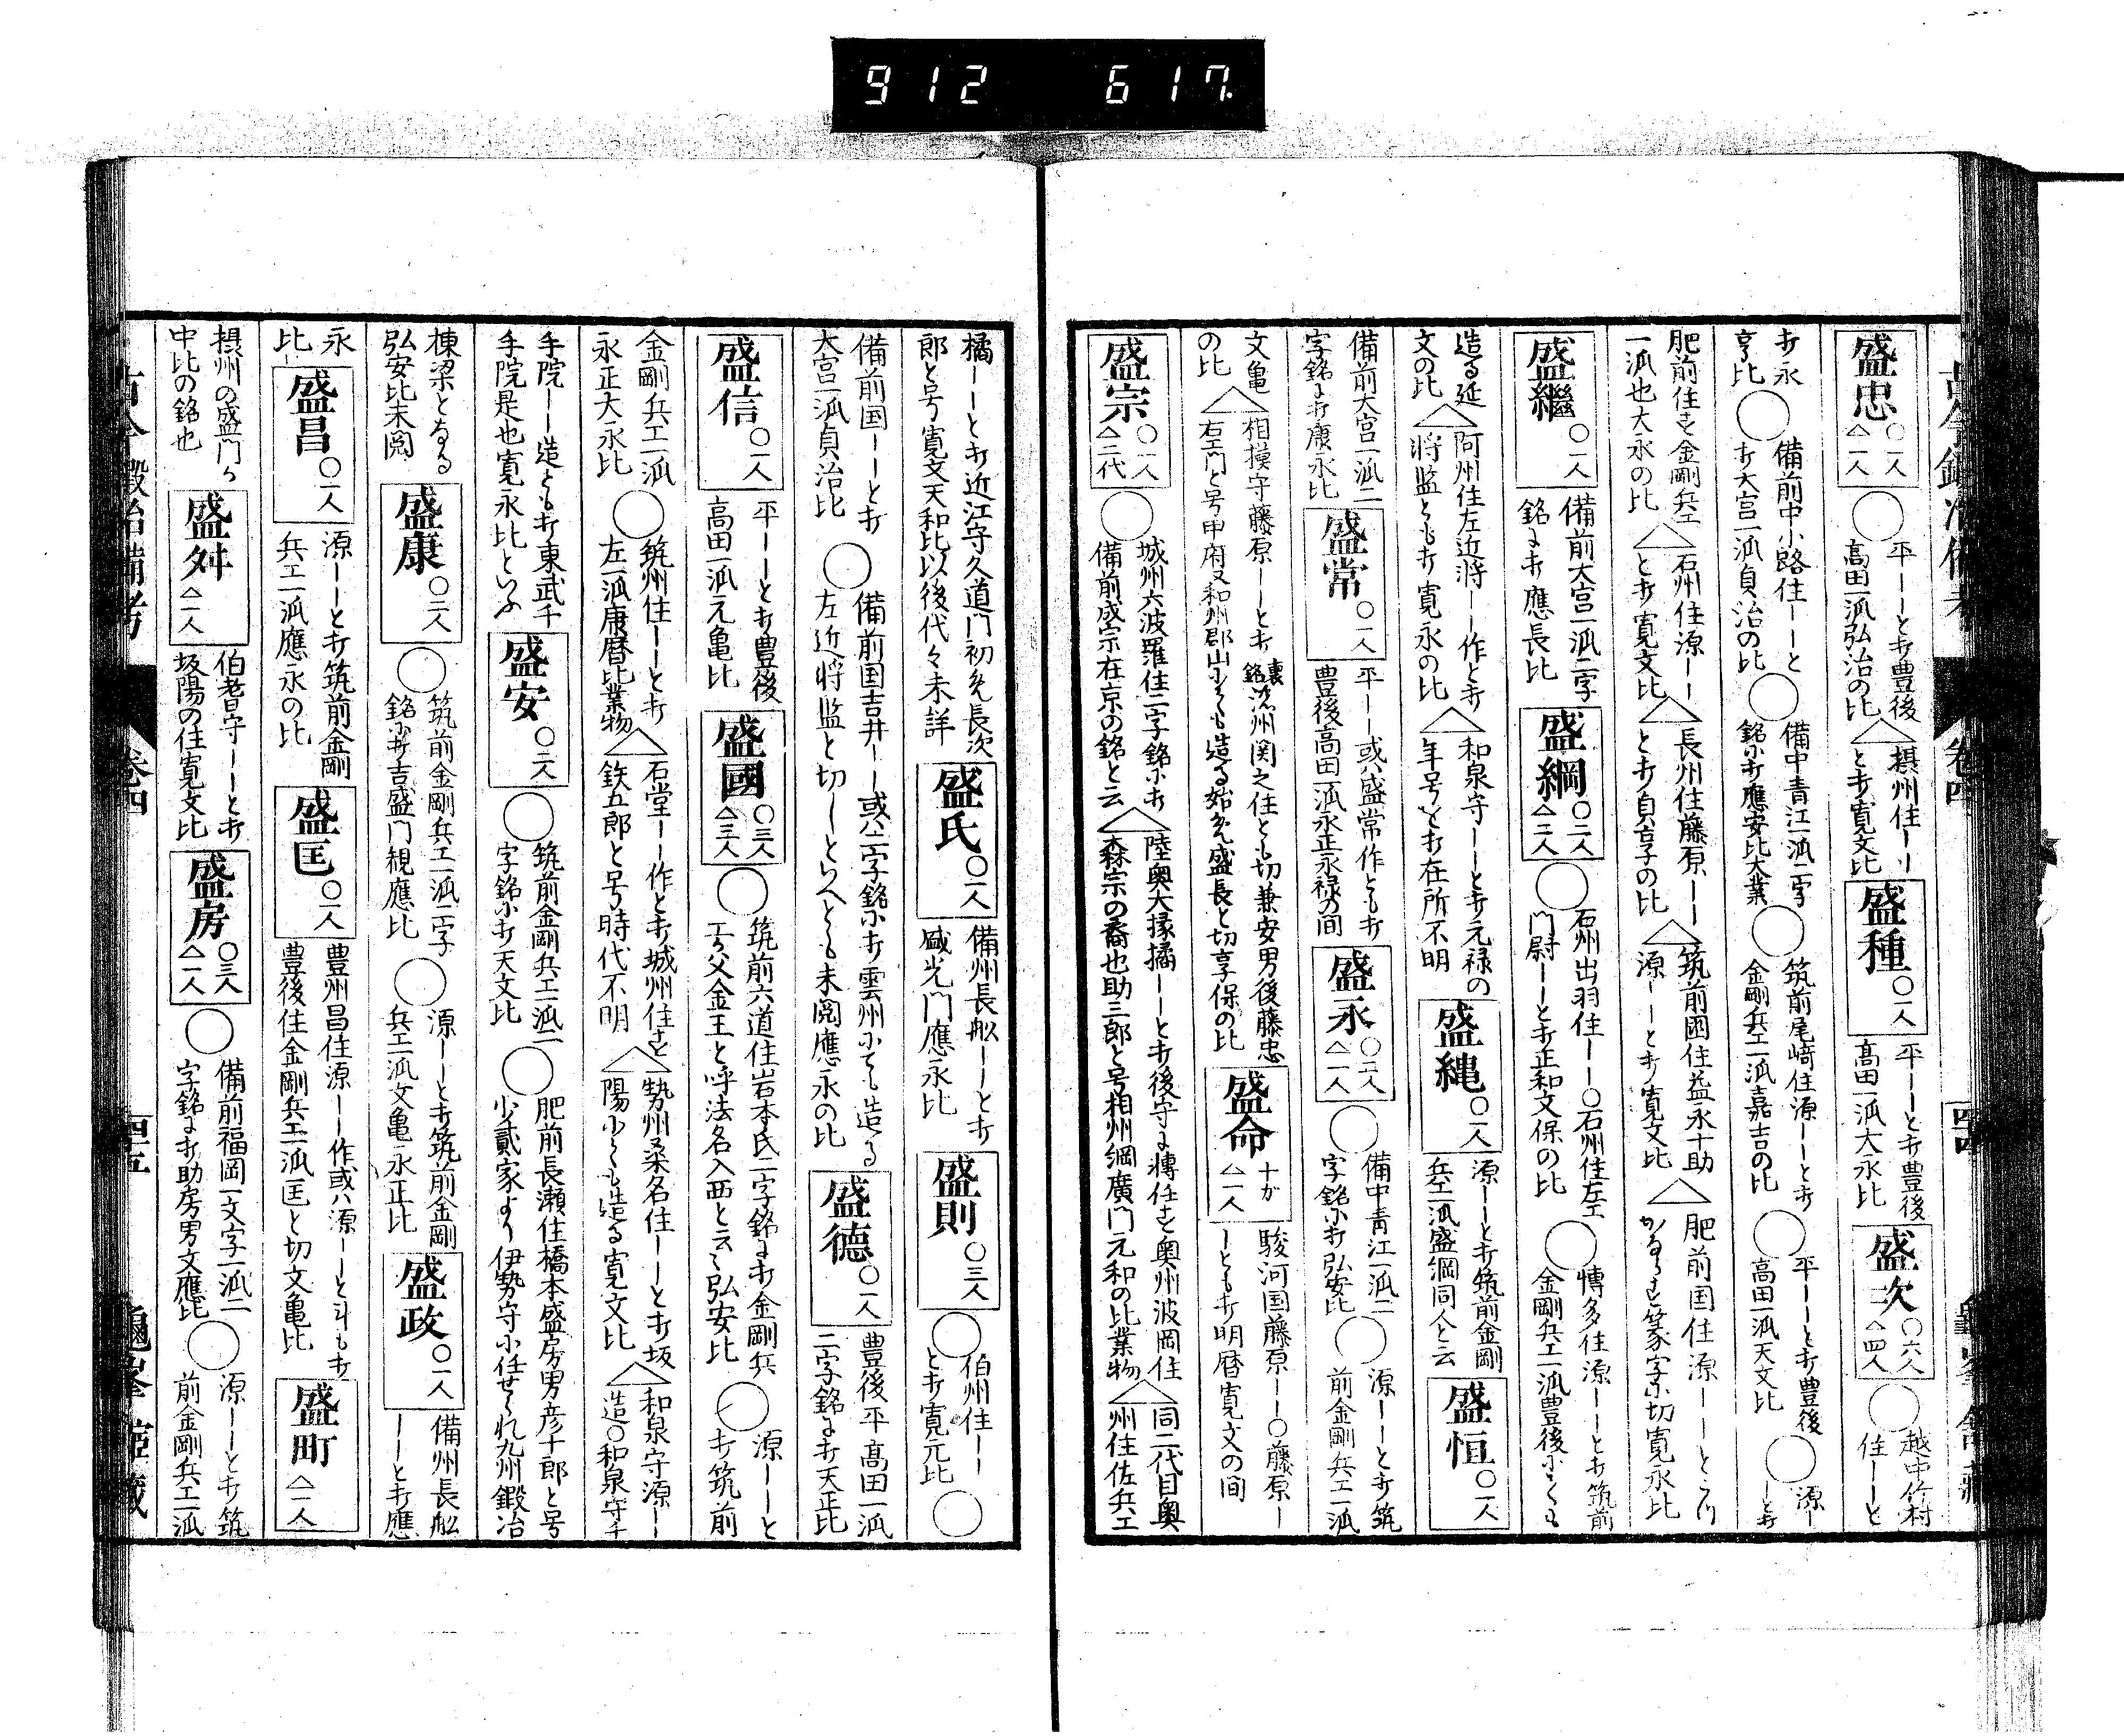 912 617
盛忠 〇一人 △一人
〇 平ーーとキ豊後
高田一派弘治の比
△ 摂州住ーーl
とキ寛文比
盛種 〇一人
平ーーとキ豊後
高田一派大永比
盛次 〇六人 △四人
〇 越中竹村
住ーーと
キ永
亨比
〇 備前中小路住ーーと
キ大宮一派貞治の比
〇 備中青江一派二字
銘小キ應安比大業
〇 筑前尾﨑住源ーーとキ
金剛兵エ一派嘉吉の比
〇 平ーーとキ豊後
高田一派天文比
〇 源ー
ーとキ
肥前住す金剛兵エ
一派也大永の比
△ 石州住源ーー
とキ寛文比
△ 長州住藤原ーー
とキ貞享の比
△ 筑前国住益永十助
源ーーとキ寛文比
△ 肥前国住源ーー
篆字小切寛永比
盛繼 〇一人
備前大宮一派二字
銘またキ應長比
盛綱 〇二人 △二人
〇 石州出羽住ーー〇石州住左エ
門尉ーーとキ正和文保の比
〇 博多住源ーーとキ筑前
金剛兵エ一派豊後小ても
造る延
文の比
△ 阿州住左近将ーー作とキ
将監ともキ寛永の比
△ 和泉守ーーとキ元禄の
年号とキ在所不明
盛縄 〇一人
源ーーとキ筑前金剛
兵エ一派盛綱同人と云
盛恒 〇一人
備前大宮一派二
字銘またキ康永比
盛常 〇一人
平ーー或ハ盛常作ともキ
豊後高田一派永正永禄乃間
盛永 〇二人 △一人
〇 備中青江一派二
字銘小キ弘安比
〇 源ーーとキ筑
前金剛兵エ一派
文亀
の比
△ 相模守藤原ーーとキ
裏銘 濃州関之住とも切兼安男後藤忠
右エ門と号甲府又和州郡山小ても造る始め盛長と切享保の比
盛命 十が △一人
駿河国藤原ーー〇藤原ー
ーともキ明暦寛文の間
盛宗 〇一人 △二代
〇 城州六波羅住二字銘小キ
備前盛宗在京の銘と云
△ 陸奥大掾橘ーーとキ後守に轉任す奥州波岡住
森宗の裔也助三郎と号相州綱廣門元和の比業物
△ 同二代目奥
州住佐兵エ
橘ーーとキ近江守久道門初名長次
郎と号寛文天和比以後代々未詳
盛氏 〇一人
備州長舩ーーとキ
盛光門應永比
盛則 〇三人
〇 伯州住ーー
とキ寛元比
〇
備前国ーーとキ
大宮一派貞治比
〇 備前国吉井ーー或ハ二字銘小キ雲州小ても造る
左近将監と切ーーといへとも未閲應永の比
盛徳 〇一人
豊後平高田一派
二字銘またキ天正比
盛信 〇一人
平ーーとキ豊後
高田一派元亀比
盛國 〇三人 △三人
〇 筑前六道住岩本氏二字銘またキ金剛兵
エか父金王と呼法名入西と云々弘安比
〇 源ーーと
キ筑前
金剛兵エ一派
永正大永比
〇 筑州住ーーとキ
左一派康暦比業物
△ 石堂ーー作とキ城州住す
鉄五郎と号時代不明
△ 勢州桑名住ーーとキ坂
陽小ても造る寛文比
△ 和泉守源ーー
造〇和泉守千
手院ーー造ともキ東武千
手院是也寛永比といふ
盛安 〇二人
〇 筑前金剛兵エ一派二
字銘小キ天文比
〇 肥前長瀬住橋本盛房男彦十郎と号
少貳家より伊勢守小任せられ九州鍛冶
棟梁となる
弘安比未閲
盛康 〇二人
〇 筑前金剛兵エ一派二字
銘小キ吉盛門観應比
〇 源ーーとキ筑前金剛
兵エ一派文亀永正比
盛政 〇一人
備州長舩
ーーとキ應
永
比
盛昌 〇一人
源ーーとキ筑前金剛
兵エ一派應永の比
盛匡 〇一人
豊州昌住源ーー作或ハ源ーーとㅤもキ
豊後住金剛兵エ一派匡と切文亀比
盛町 △一人
摂州の盛門か
中比の銘也
盛舛 △一人
伯耆守ーーとキ
坂陽の住寛文比
盛房 〇三人 △一人
〇 備前福岡一文字一派二
字銘またキ助房男文應比
〇 源ーーとキ筑
前金剛兵エ一派
卷四
四五